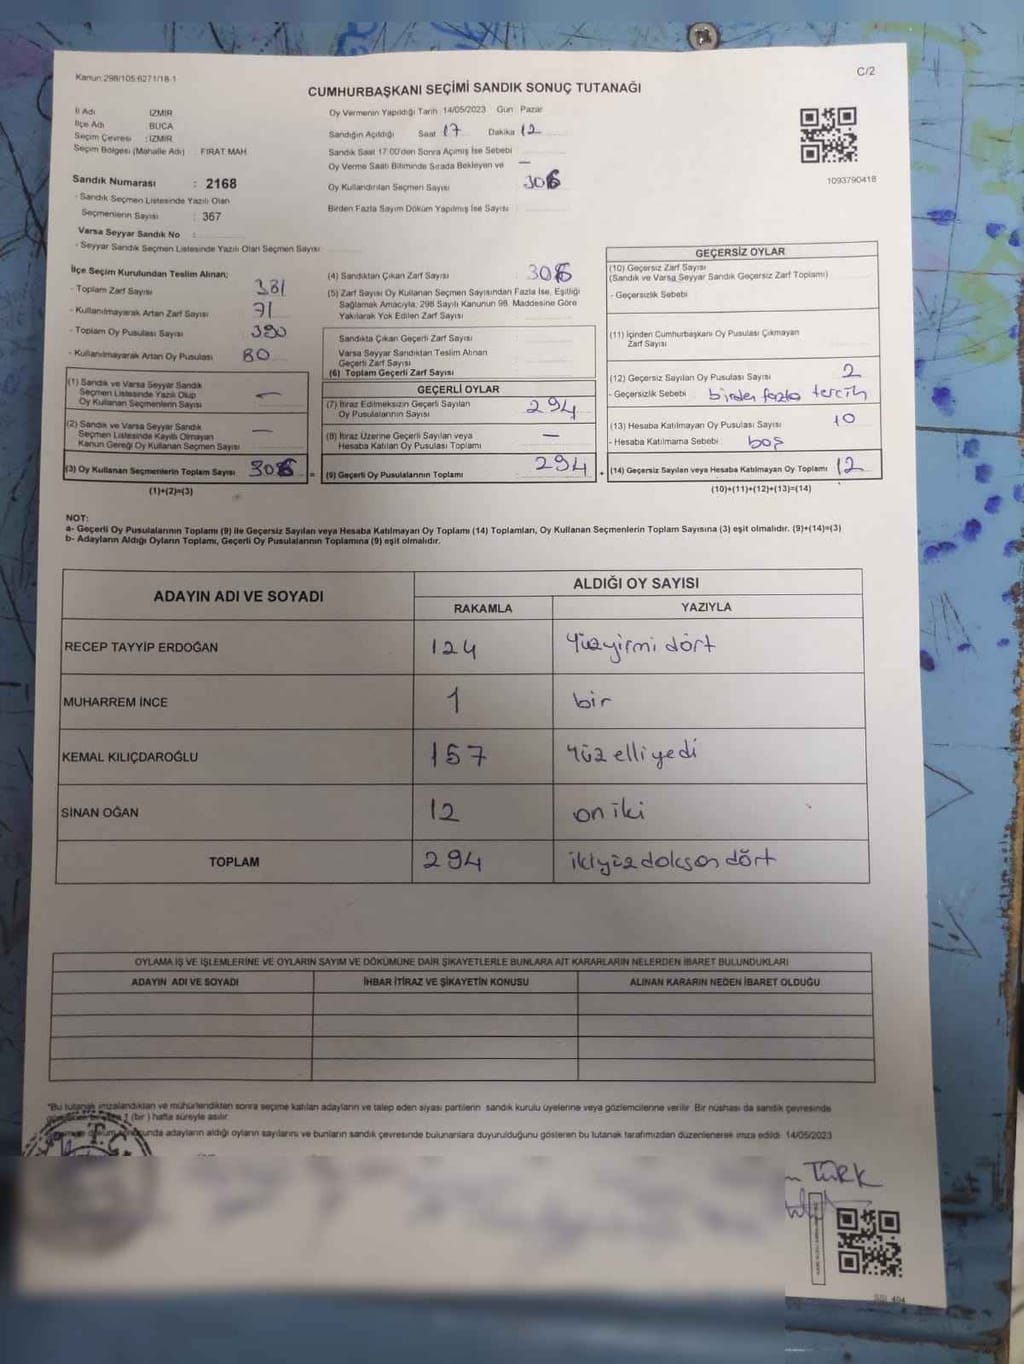 Kanun:298/105:6271/18-1
C/2
CUMHURBAŞKANI SEÇİMİ SANDIK SONUÇ TUTANAĞI
İl Adı İZMİR
İlçe Adı BUCA
Seçim Çevresi : İZMİR
Seçim Bölgesi (Mahalle Adı) FIRAT MAH.
Sandık Numarası : 2168
- Sandık Seçmen Listesinde Yazılı Olan
Seçmenlerin Sayısı : 367
Varsa Seyyar Sandık No :
- Seyyar Sandık Seçmen Listesinde Yazılı Olan Seçmen Sayısı
Oy Vermenin Yapıldığı Tarih 14/05/2023 Gün Pazar
Sandığın Açıldığı Saat 17 Dakika 12
Sandık Saat 17:00'den Sonra Açımış İse Sebebi
Oy Verme Saati Bitiminde Sırada Bekleyen ve —
Oy Kullandırılan Seçmen Sayısı 306
Birden Fazla Sayım Döküm Yapılmış İse Sayısı
1093790418
İlçe Seçim Kurulundan Teslim Alınan;
- Toplam Zarf Sayısı 381
- Kullanılmayarak Artan Zarf Sayısı 71
- Toplam Oy Pusulası Sayısı 390
- Kullanılmayarak Artan Oy Pusulası 80
(1) Sandık ve Varsa Seyyar Sandık
Seçmen Listesinde Yazılı Olup
Oy Kullanan Seçmenlerin Sayısı —
(2) Sandık ve Varsa Seyyar Sandık
Seçmen Listesinde Kayıtlı Olmayan
Kanun Gereği Oy Kullanan Seçmen Sayısı —
(3) Oy Kullanan Seçmenlerin Toplam Sayısı 306 =
(1)+(2)=(3)
(4) Sandıktan Çıkan Zarf Sayısı 306
(5) Zarf Sayısı Oy Kullanan Seçmen Sayısından Fazla İse, Eşitliği
Sağlamak Amacıyla; 298 Sayılı Kanunun 98. Maddesine Göre
Yakılarak Yok Edilen Zarf Sayısı
Sandıkta Çıkan Geçerli Zarf Sayısı
Varsa Seyyar Sandıktan Teslim Alınan
Geçerli Zarf Sayısı
(6) Toplam Geçerli Zarf Sayısı
GEÇERLİ OYLAR
(7) İtiraz Edilmeksizin Geçerli Sayılan
Oy Pusulalarının Sayısı 294
(8) İtiraz Üzerine Geçerli Sayılan veya
Hesaba Katılan Oy Pusulası Toplamı —
(9) Geçerli Oy Pusulalarının Toplamı 294 +
GEÇERSİZ OYLAR
(10) Geçersiz Zarf Sayısı
(Sandık ve Varsa Seyyar Sandık Geçersiz Zarf Toplamı)
- Geçersizlik Sebebi
(11) İçinden Cumhurbaşkanı Oy Pusulası Çıkmayan
Zarf Sayısı
(12) Geçersiz Sayılan Oy Pusulası Sayısı 2
- Geçersizlik Sebebi birden fazla tercih
(13) Hesaba Katılmayan Oy Pusulası Sayısı 10
- Hesaba Katılmama Sebebi boş
(14) Geçersiz Sayılan veya Hesaba Katılmayan Oy Toplamı 12
(10)+(11)+(12)+(13)=(14)
NOT:
a- Geçerli Oy Pusulalarının Toplamı (9) ile Geçersiz Sayılan veya Hesaba Katılmayan Oy Toplamı (14) Toplamları, Oy Kullanan Seçmenlerin Toplam Sayısına (3) eşit olmalıdır. (9)+(14)=(3)
b- Adayların Aldığı Oyların Toplamı, Geçerli Oy Pusulalarının Toplamına (9) eşit olmalıdır.
ADAYIN ADI VE SOYADI ALDIĞI OY SAYISI
RAKAMLA YAZIYLA
RECEP TAYYİP ERDOĞAN 124 Yüzyirmi dört
MUHARREM İNCE 1 bir
KEMAL KILIÇDAROĞLU 157 Yüz elli yedi
SİNAN OĞAN 12 on iki
TOPLAM 294 ikiyüzdoksan dört
OYLAMA İŞ VE İŞLEMLERİNE VE OYLARIN SAYIM VE DÖKÜMÜNE DAİR ŞİKAYETLERLE BUNLARA AİT KARARLARIN NELERDEN İBARET BULUNDUKLARI
ADAYIN ADI VE SOYADI İHBAR İTİRAZ VE ŞİKAYETİN KONUSU ALINAN KARARIN NEDEN İBARET OLDUĞU
"Bu tutanak imzalandıktan ve mühürlendikten sonra seçime katılan adayların ve talep eden siyasi partilerin sandık kurulu üyelerine veya gözlemcilerine verilir. Bir nüshası da sandık çevresinde
1 (bir) hafta süreyle asılır.
adayların aldığı oyların sayılarını ve bunların sandık çevresinde bulunanlara duyurulduğunu gösteren bu tutanak tarafımızdan düzenlenerek imza edildi. 14/05/2023
T.C.
TÜRK